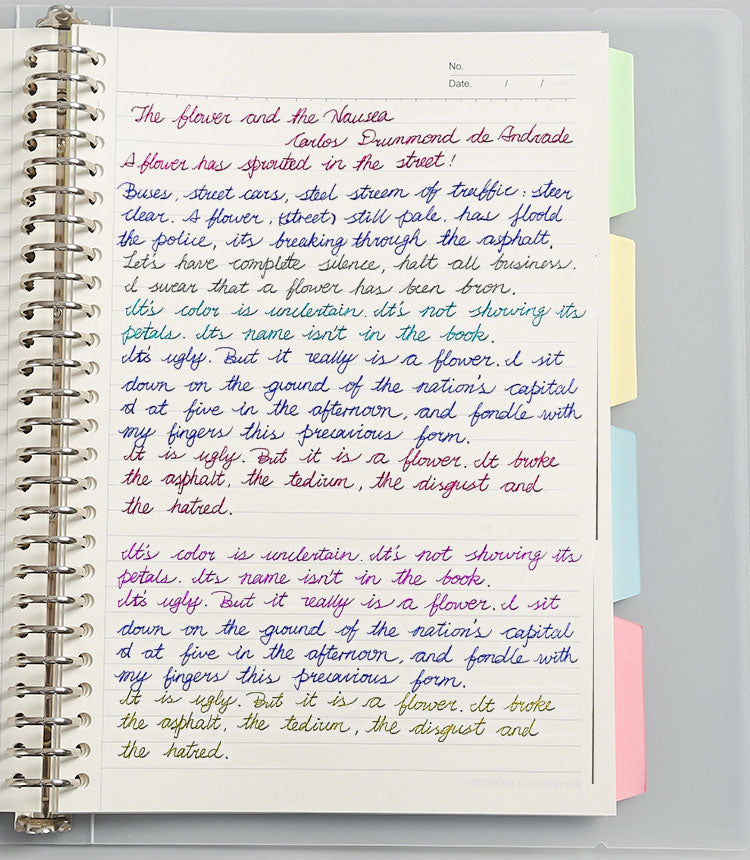 No.
Date. / /
The flower and the Nausea
Carlos Drummond de Andrade
A flower has sprouted in the street!
Buses, street cars, steel streem of traffic: steer
clear. A flower, (street) still pale. has floold
the police, its breaking through the asphalt.
Let's have complete silence, halt all business.
I swear that a flower has been bron.
It's color is undertain. It's not showing its
petals. Its name isn't in the book.
It's ugly. But it really is a flower. I sit
down on the ground of the nation's capital
d at five in the afternoon, and fondle with
my fingers this precavious form.
It is ugly. But it is a flower. It broke
the asphalt, the tedium, the disgust and
the hatred.
It's color is undertain. It's not showing its
petals. Its name isn't in the book.
It's ugly. But it really is a flower. I sit
down on the ground of the nation's capital
d at five in the afternoon, and fondle with
my fingers this precavious form.
It is ugly. But it is a flower. It broke
the asphalt, the tedium, the disgust and
the hatred.